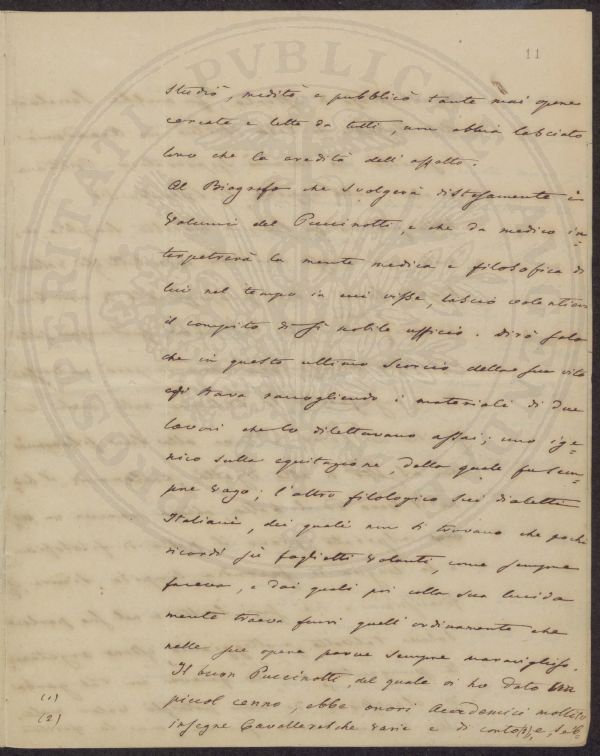 11
studiò, meditò e pubblicò tante mai opere
cercate e lette da tutti, non abbia lasciato
loro che la eredità dell' affetto.
Al Biografo che svolgerà distesamente i
volumi del Puccinotti, e che da medico in-
terpetrerà la mente medica e filosofica di
lui nel tempo in cui visse, lascio volentieri
il compito di sì nobile ufficio. Dirò solo
che in questo ultimo scorcio della sua vita
egli stava raccogliendo i materiali di due
lavori che lo dilettavano assai; uno ige-
nico sulla equitazione, della quale fu sem-
pre vago; l'altro filologico sui dialetti
Italiani, dei quali non si trovano che pochi
ricordi su foglietti volanti, come sempre
faceva, e dai quali poi colla sua lucida
mente traeva fuori quell' ordinamento che
nelle sue opere parve sempre maraviglioso.
Il buon Puccinotti, del quale vi ho dato un
(1) piccol cenno, ebbe onori Accademici
(2) insegne Cavalleresche varie e di
PROSPERITATI PVBLICAE